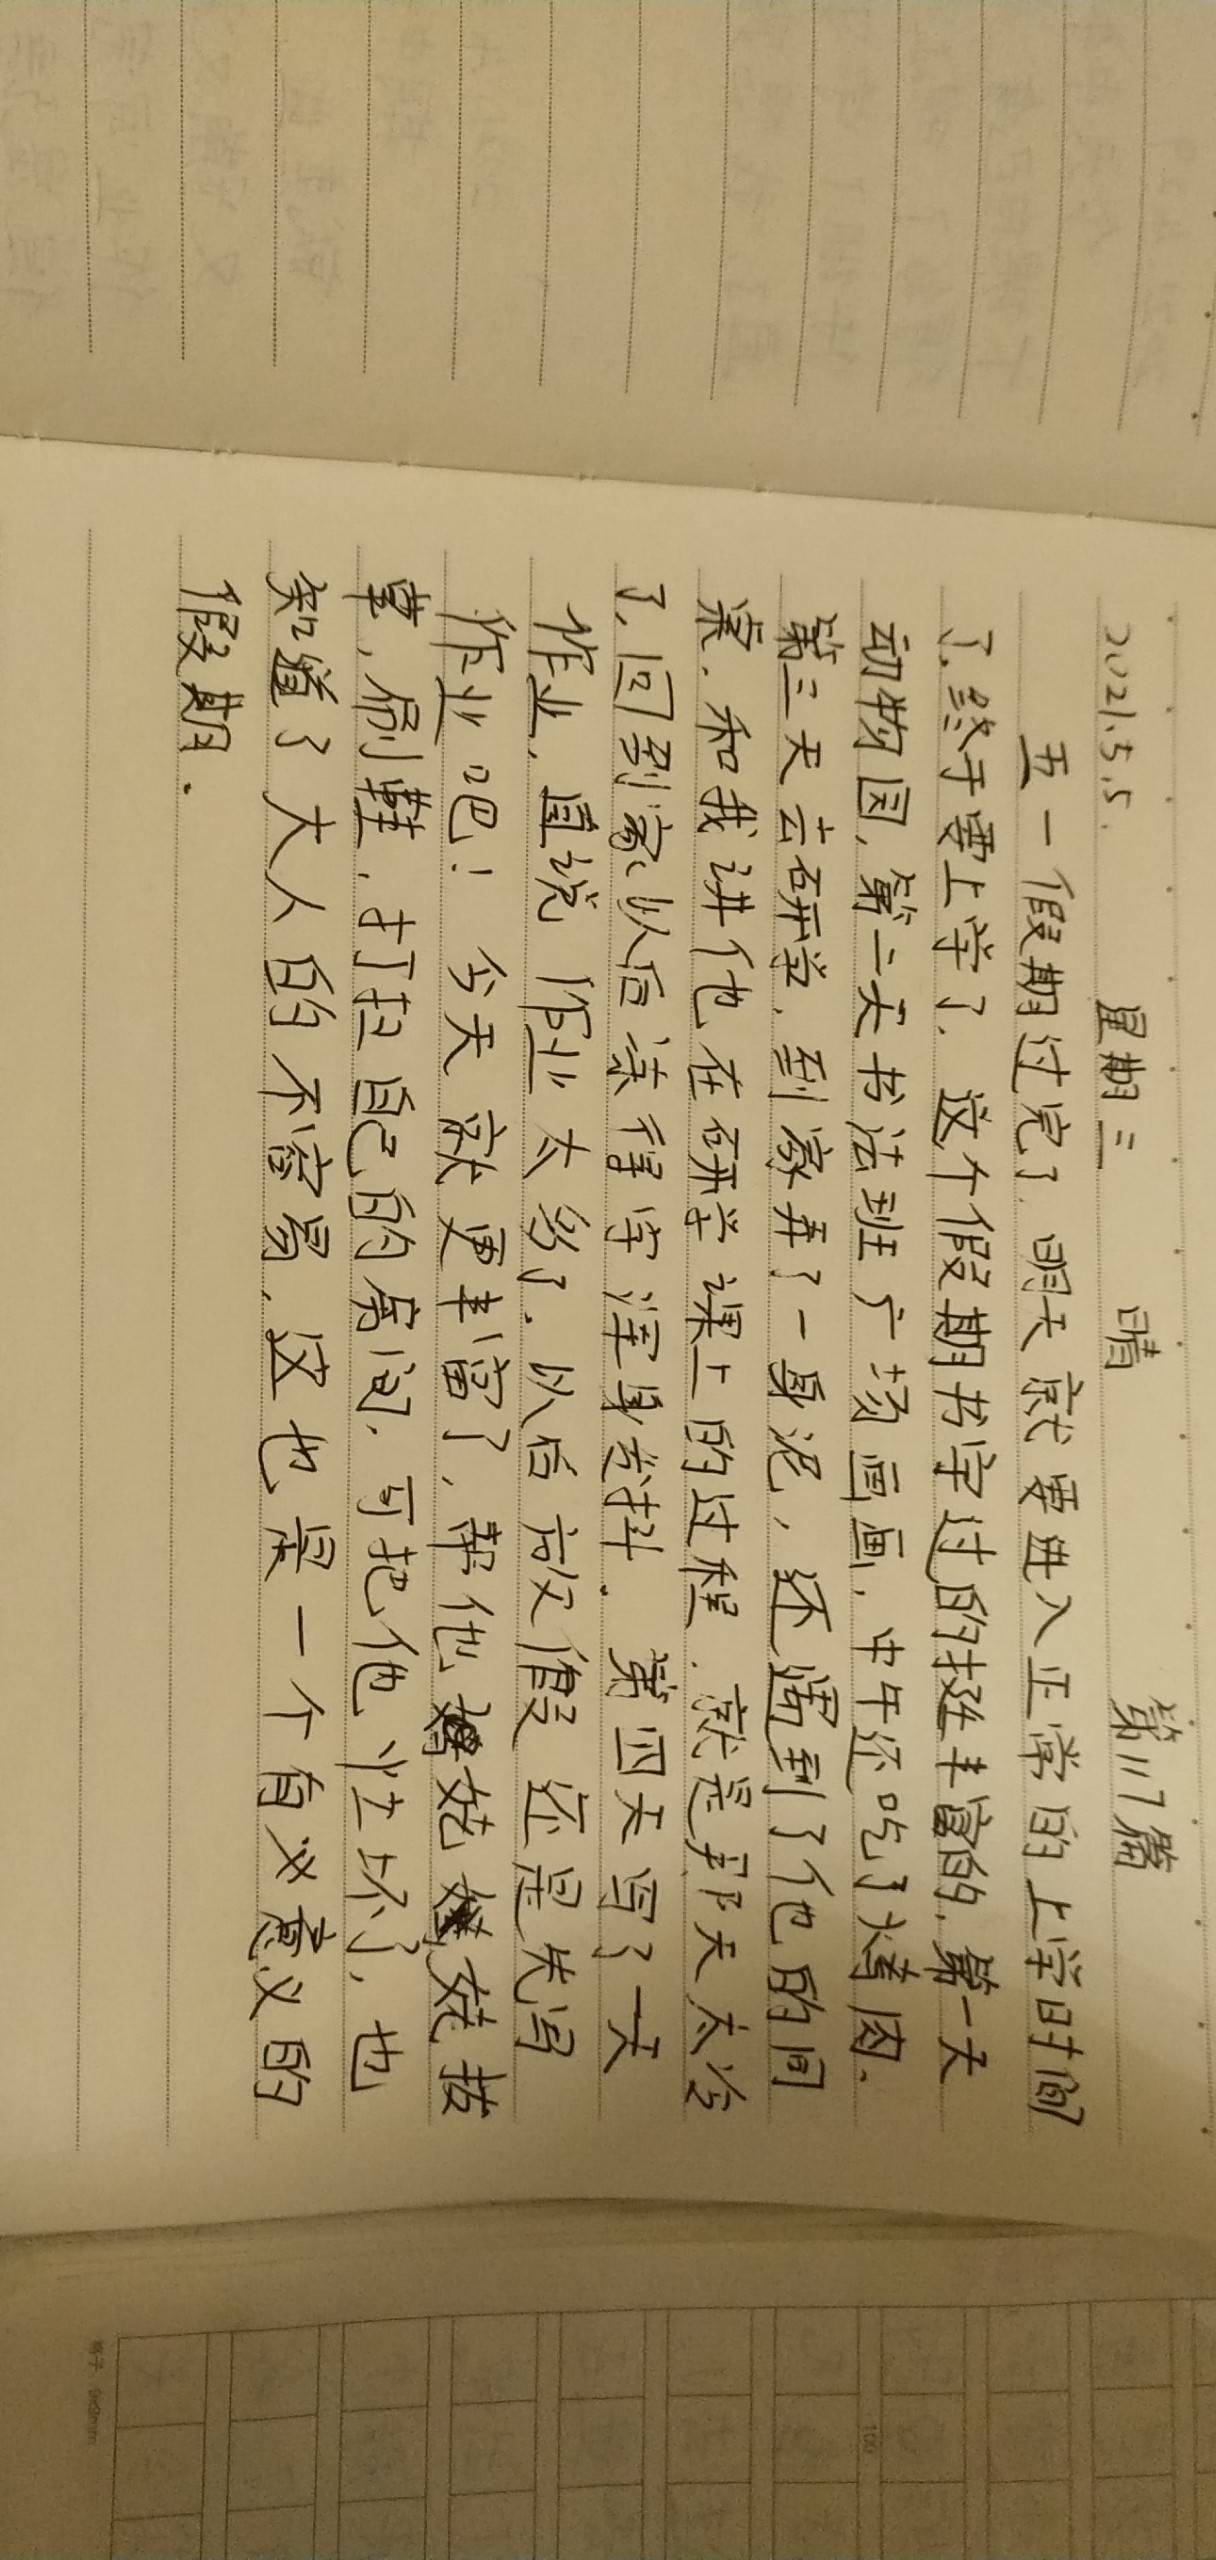 2021.5.5. 星期三 晴 第117篇
五一假期过完了，明天就要进入正常的上学时间
了，终于要上学了，这个假期书宇过的挺丰富的，第一天
动物园，第二天书法班广场画画，中午还吃了烤肉．
第三天去研学，到家弄了一身泥，还遇到了他的同
桌，和我讲他在研学课上的过程．就是那天太冷
了，回到家以后涼得宇浑身发抖．第四天写了一天
作业，直说作业太多了．以后放假还是先写
作业吧！今天就更丰富了，帮他姥姥拔
草，刷鞋，打扫自己的房间，可把他忙坏了，也
知道了大人的不容易，这也是一个有意义的
假期．